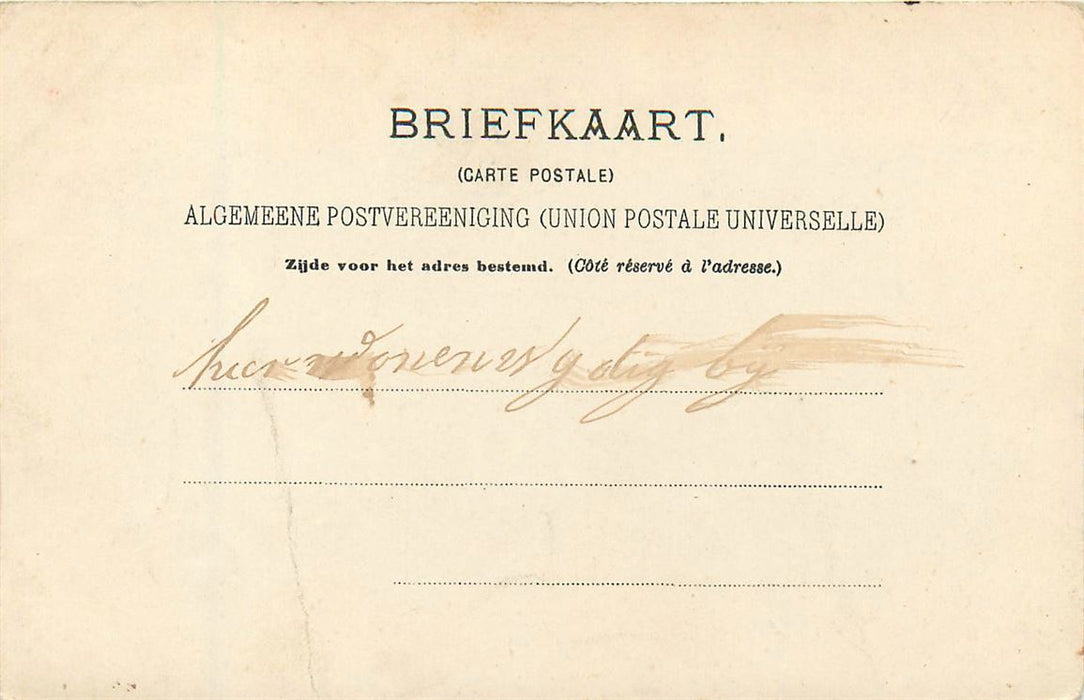 BRIEFKAART.
(CARTE POSTALE)
ALGEMEENE POSTVEREENIGING (UNION POSTALE UNIVERSELLE)
Zijde voor het adres bestemd. (Côté réservé à l'adresse.)
hier wonen wy dig by